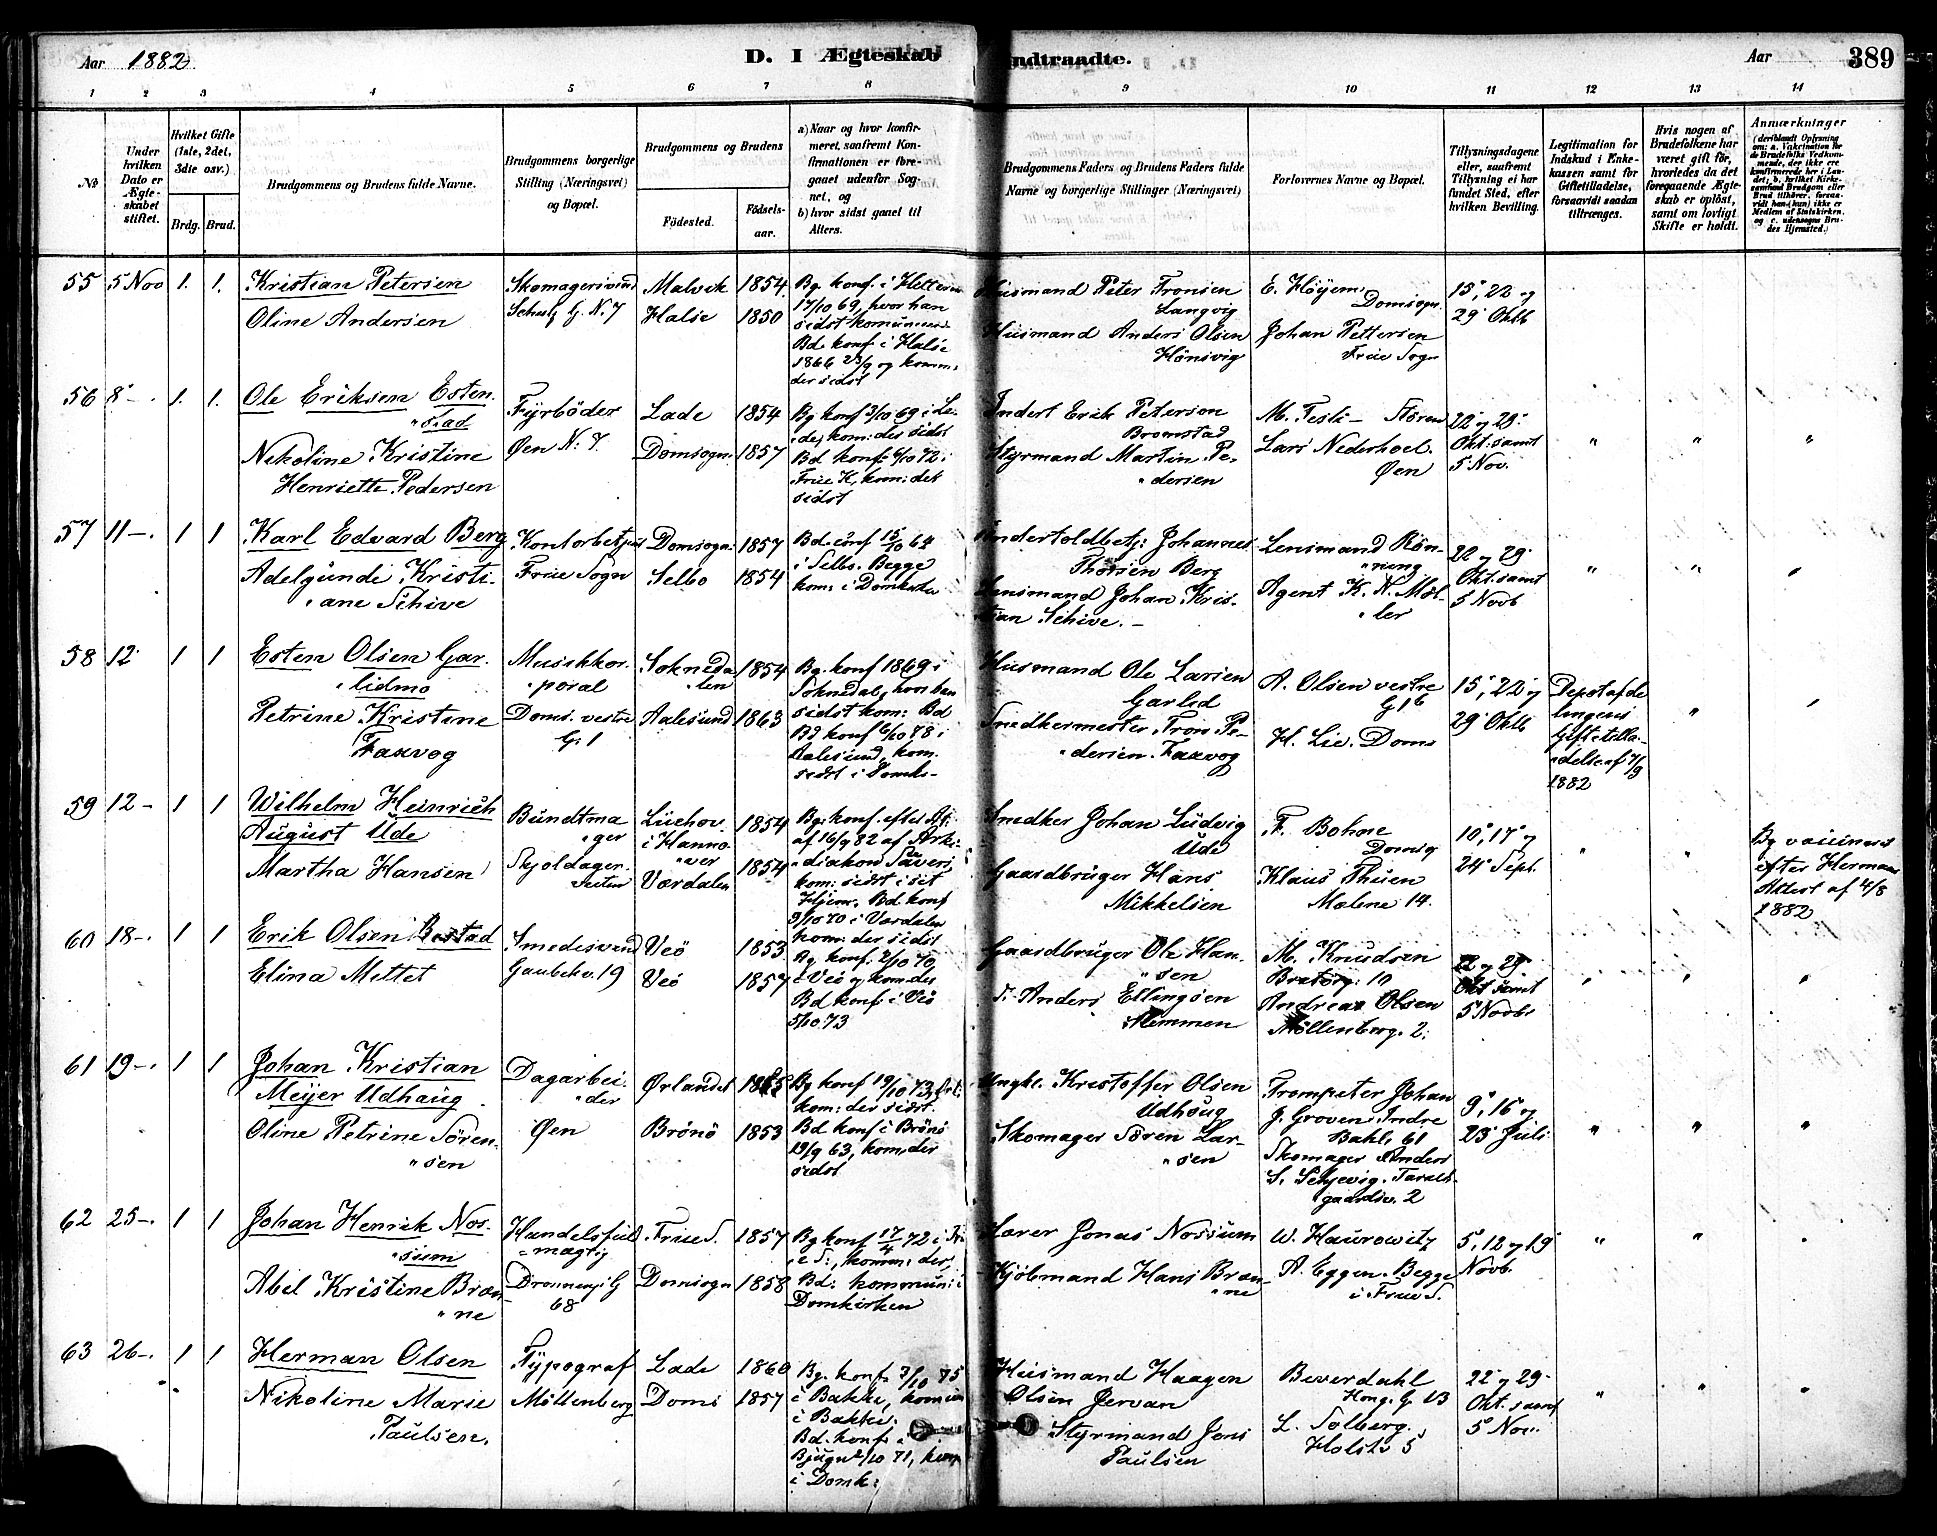 Aar 1882
D. I Ægteskab Indtraadte.
Aar 389
1 2 3 4 5 6 7 8 9 10 11 12 13 14
№
Under hvilken Dato er Ægteskabet stiftet.
Hvilket Gifte (1ste, 2det, 3die osv.)
Brdg. Brud.
Brudgommens og Brudens fulde Navne.
Brudgommens borgerlige Stilling (Næringsvei) og Bopæl.
Brudgommens og Brudens
Fødested.
Fødselsaar.
a) Naar og hvor konfirmeret, saafremt Konfirmationen er foregaaet udenfor Sognet, og
b) hvor sidst gaaet til Alters.
Brudgommens Faders og Brudens Faders fulde Navne og borgerlige Stillinger (Næringsvei)
Forlovernes Navne og Bopæl.
Tillysningsdagene eller, saafremt Tillysning ei har fundet Sted, efter hvilken Bevilling.
Legitimation for Indskud i Enkekassen samt for Giftetilladelse, forsaavidt saadan tiltrænges.
Hvis nogen af Brudefolkene har været gift før, hvorledes da det foregaaende Ægteskab er opløst, samt om lovligt Skifte er holdt.
Anmærkninger
55 5 Nov 1. 1.
Kristian Petersen
Oline Andersen
Skomagersvend
G. N. 7
Malvik 1854
Halse 1850
17/10 69, hvor han
Bd. konf. i Halse
1866 23/9 og komm.
der sidst
Husmand Peter Tronsen
Langvig
Husmand Anders Olsen
Hönsvig
E. Höyem
Domsogn.
Johan Pettersen
Frue Sogn
15', 22' og
29' Oktb
56 8 -. 1. 1.
Ole Eriksen Esten
"stad
Nikoline Kristine
Henriette Pedersen
Fyrböder
Øen N. 7.
Lade 1854
Domsogn. 1857
Bg konf 3/10 69 i La-
"de, kom: der sidst
Bd konf: 6/10 72 i
Frue K, kom: det
sidst
Inderst Erik Peterson
Bromstad
Styrmand Martin Pe-
"dersen
Lars Nederhoel.
Øen
22' og 29'
Okt. samt
5 Nov.
" " "
57 11 -. 1 1
Karl Edvard Berg
Adelgunde Kristi-
"ane Schive
Frue Sogn
Domsogn. 1857
Selbo 1854
Bd. conf 15/10 64
i Selbo. Begge
kom: i Domkirken
Johannes
Thorsen Berg
Lensmand Johan Kris-
tian Schive. -
Lensmand Rön-
"ning
Agent K. N. Möl-
"ler
22' og 29'
Okt. samt
5 Novb
" " "
58 12 1 1
Esten Olsen Gar-
"lidmo
Petrine Kristine
Faxvog
Musikkor-
"poral
Doms. vestre
G. 1
Sokneda-
"len 1854
Aalesund 1863
Bg. konf 1869 i
Soknedal, hvor han
sidst kom: Bd
Bd konf 6/10 78 i
Aalesund, kom.
sidst i Domk-
Husmand Ole Larsen
Garlid
Snedkermester Tron Pe-
"dersen Faxvog
A. Olsen vestre
G 1 b
H. Lie. Doms
15', 22' og
29' Oktb
Depotafde
lingens
Giftetilla-
"delse af 7/9
1882
" "
59 12 - 1 1
Wilhelm Heinrich
August Ude
Martha Hansen
Bundtma
"ger
i Hanno-
"ver 1854
Værdalen 1854
Bg: konf. efter At:
af 16/9 82 af Arki-
"diakon
kom: sidst i sit
Hjem. Bd konf
9/10 70 i Værdalen
kom: der sidst
Snedker Johan Ludvig
Ude
Gaardbruger Hans
Mikkelsen
F. Bohne
Domsg
Klaus Thuen
Molene 14.
10', 17' og
24' Sept.
" "
Bg vaccineret
efter
Attest af 4/8
1882
60 18 -. 1 1
Erik Olsen Bostad
Elina Mettet
Smedesvend
Gaubekv. 19
Veö 1853
Veö 1857
Bg. konf. 2/10 70
i Veö og kom der
Bd konf i Veö
5/10 73
Gaardbruger Ole Han-
"sen
Anders Ellingsen
M. Knudsen
Andreas Olsen
Möllenberg. 2.
22 og 29'
Okt samt
5 Novb.
" " "
61 19 -. 1 1
Johan Kristian
Meyer Udhaug
Oline Petrine Sören-
"sen
Dagarbei-
"der
Øen
Ørlandet
Brönö 1853
Bg konf 19/10 73
kom: der sidst.
Bd konf i Brönö
13/9 63, kom: der
sidst
Ungkl. Kristoffer Olsen
Udhoug
Skomager Sören Lar-
"sen
Trompeter Johan
J. Groven. Indre
Bakl. 61
Skomager Anders
9', 16' og
23' Juli
" " "
62 25 -. 1 1
Johan Henrik Nos-
"sum
Abel Kristine Bræn-
"ne
Handelsful
"mægtig
68
Frue S. 1857
Domsogn 1858
Bg konf 17/4 72 i Fr:
komm: der,
Bd: kommun: i
Domkirken
Jonas Nossum
Kjöbmand Hans Bræn-
"ne
W. Haurowitz
A. Eggen. Begge
i Frue S.
5', 12' og 19'
Novb.
" "
63 26 -. 1 1
Herman Olsen
Nikoline Marie
Paulsen.
Typograf
Möllenberg
Lade 1860
Doms 1857
Bg. konf. 3/10 75
i Bakke,
i Bakke.
Bd. konf. i
Bjugn 2/10 71, kom
i Domk:
Husmand Haagen
Olsen Jervan
Styrmand Jens
Paulsen
Beverdahl
L. Solberg.
Holstv 5
22' og 29'
Okt. samt
5' Nov.
" " "